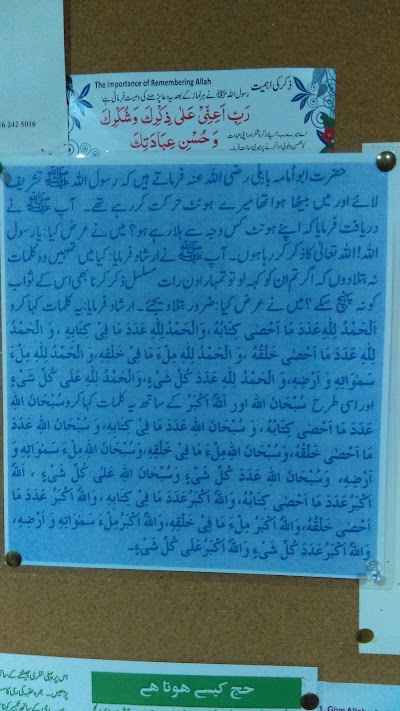 16 242 5016
The Importance of Remembering Allah
ذکر کی اہمیت
رسول اللہ ﷺ نے ہر نماز کے بعد یہ دعا پڑھنے کی وصیت فرمائی ہے:
رَبِّ اَعِنِّیْ عَلٰی ذِکْرِکَ وَشُکْرِکَ
وَحُسْنِ عِبَادَتِکَ
حضرت ابو اُمامہ باہلی رضی اللہ عنہ فرماتے ہیں کہ رسول اللہ ﷺ تشریف
لائے اور میں بیٹھا ہوا تھا میرے ہونٹ حرکت کر رہے تھے۔ آپ ﷺ نے
دریافت فرمایا کہ اپنے ہونٹ کس وجہ سے ہلا رہے ہو؟ میں نے عرض کیا: یا رسول
اللہ! اللہ تعالیٰ کا ذکر کر رہا ہوں۔ آپ ﷺ نے ارشاد فرمایا: کیا میں تمہیں وہ کلمات
نہ بتلا دوں کہ اگر تم ان کو کہہ لو تو تمہارا دن رات مسلسل ذکر کرنا بھی اس کے ثواب
کو نہ پہنچ سکے؟ میں نے عرض کیا: ضرور بتلا دیجئے۔ ارشاد فرمایا: یہ کلمات کہا کرو
اَلْحَمْدُ لِلّٰهِ عَدَدَ مَا اَحْصٰی کِتَابُهٗ، وَالْحَمْدُ لِلّٰهِ عَدَدَ مَا فِیْ کِتَابِهٖ، وَ الْحَمْدُ
لِلّٰهِ عَدَدَ مَا اَحْصٰی خَلْقُهٗ، وَالْحَمْدُ لِلّٰهِ مِلْءَ مَا فِیْ خَلْقِهٖ، وَالْحَمْدُ لِلّٰهِ مِلْءَ
سَمٰوَاتِهٖ وَ اَرْضِهٖ، وَ الْحَمْدُ لِلّٰهِ عَدَدَ کُلِّ شَیْءٍ، وَالْحَمْدُ لِلّٰهِ عَلٰی کُلِّ شَیْءٍ
اور اسی طرح سُبْحَانَ اللہ اور اَللّٰهُ اَکْبَرُ کے ساتھ یہ کلمات کہا کرو سُبْحَانَ اللهِ
عَدَدَ مَا اَحْصٰی کِتَابُهٗ، وَ سُبْحَانَ اللهِ عَدَدَ مَا فِیْ کِتَابِهٖ، وَ سُبْحَانَ اللهِ عَدَدَ
مَا اَحْصٰی خَلْقُهٗ، وَسُبْحَانَ اللهِ مِلْءَ مَا فِیْ خَلْقِهٖ، وَسُبْحَانَ اللهِ مِلْءَ سَمٰوَاتِهٖ وَ
اَرْضِهٖ، وَسُبْحَانَ اللهِ عَدَدَ کُلِّ شَیْءٍ وَسُبْحَانَ اللهِ عَلٰی کُلِّ شَیْءٍ ، اَللّٰهُ
اَکْبَرُ عَدَدَ مَا اَحْصٰی کِتَابُهٗ، وَاللّٰهُ اَکْبَرُ عَدَدَ مَا فِیْ کِتَابِهٖ، وَاللّٰهُ اَکْبَرُ عَدَدَ مَا
اَحْصٰی خَلْقُهٗ، وَاللّٰهُ اَکْبَرُ مِلْءَ مَا فِیْ خَلْقِهٖ، وَاللّٰهُ اَکْبَرُ مِلْءَ سَمٰوَاتِهٖ وَ اَرْضِهٖ،
وَاللّٰهُ اَکْبَرُ عَدَدَ کُلِّ شَیْءٍ وَاللّٰهُ اَکْبَرُ عَلٰی کُلِّ شَیْءٍ۔
حج کیسے ہوتا ہے
1. Give Allah